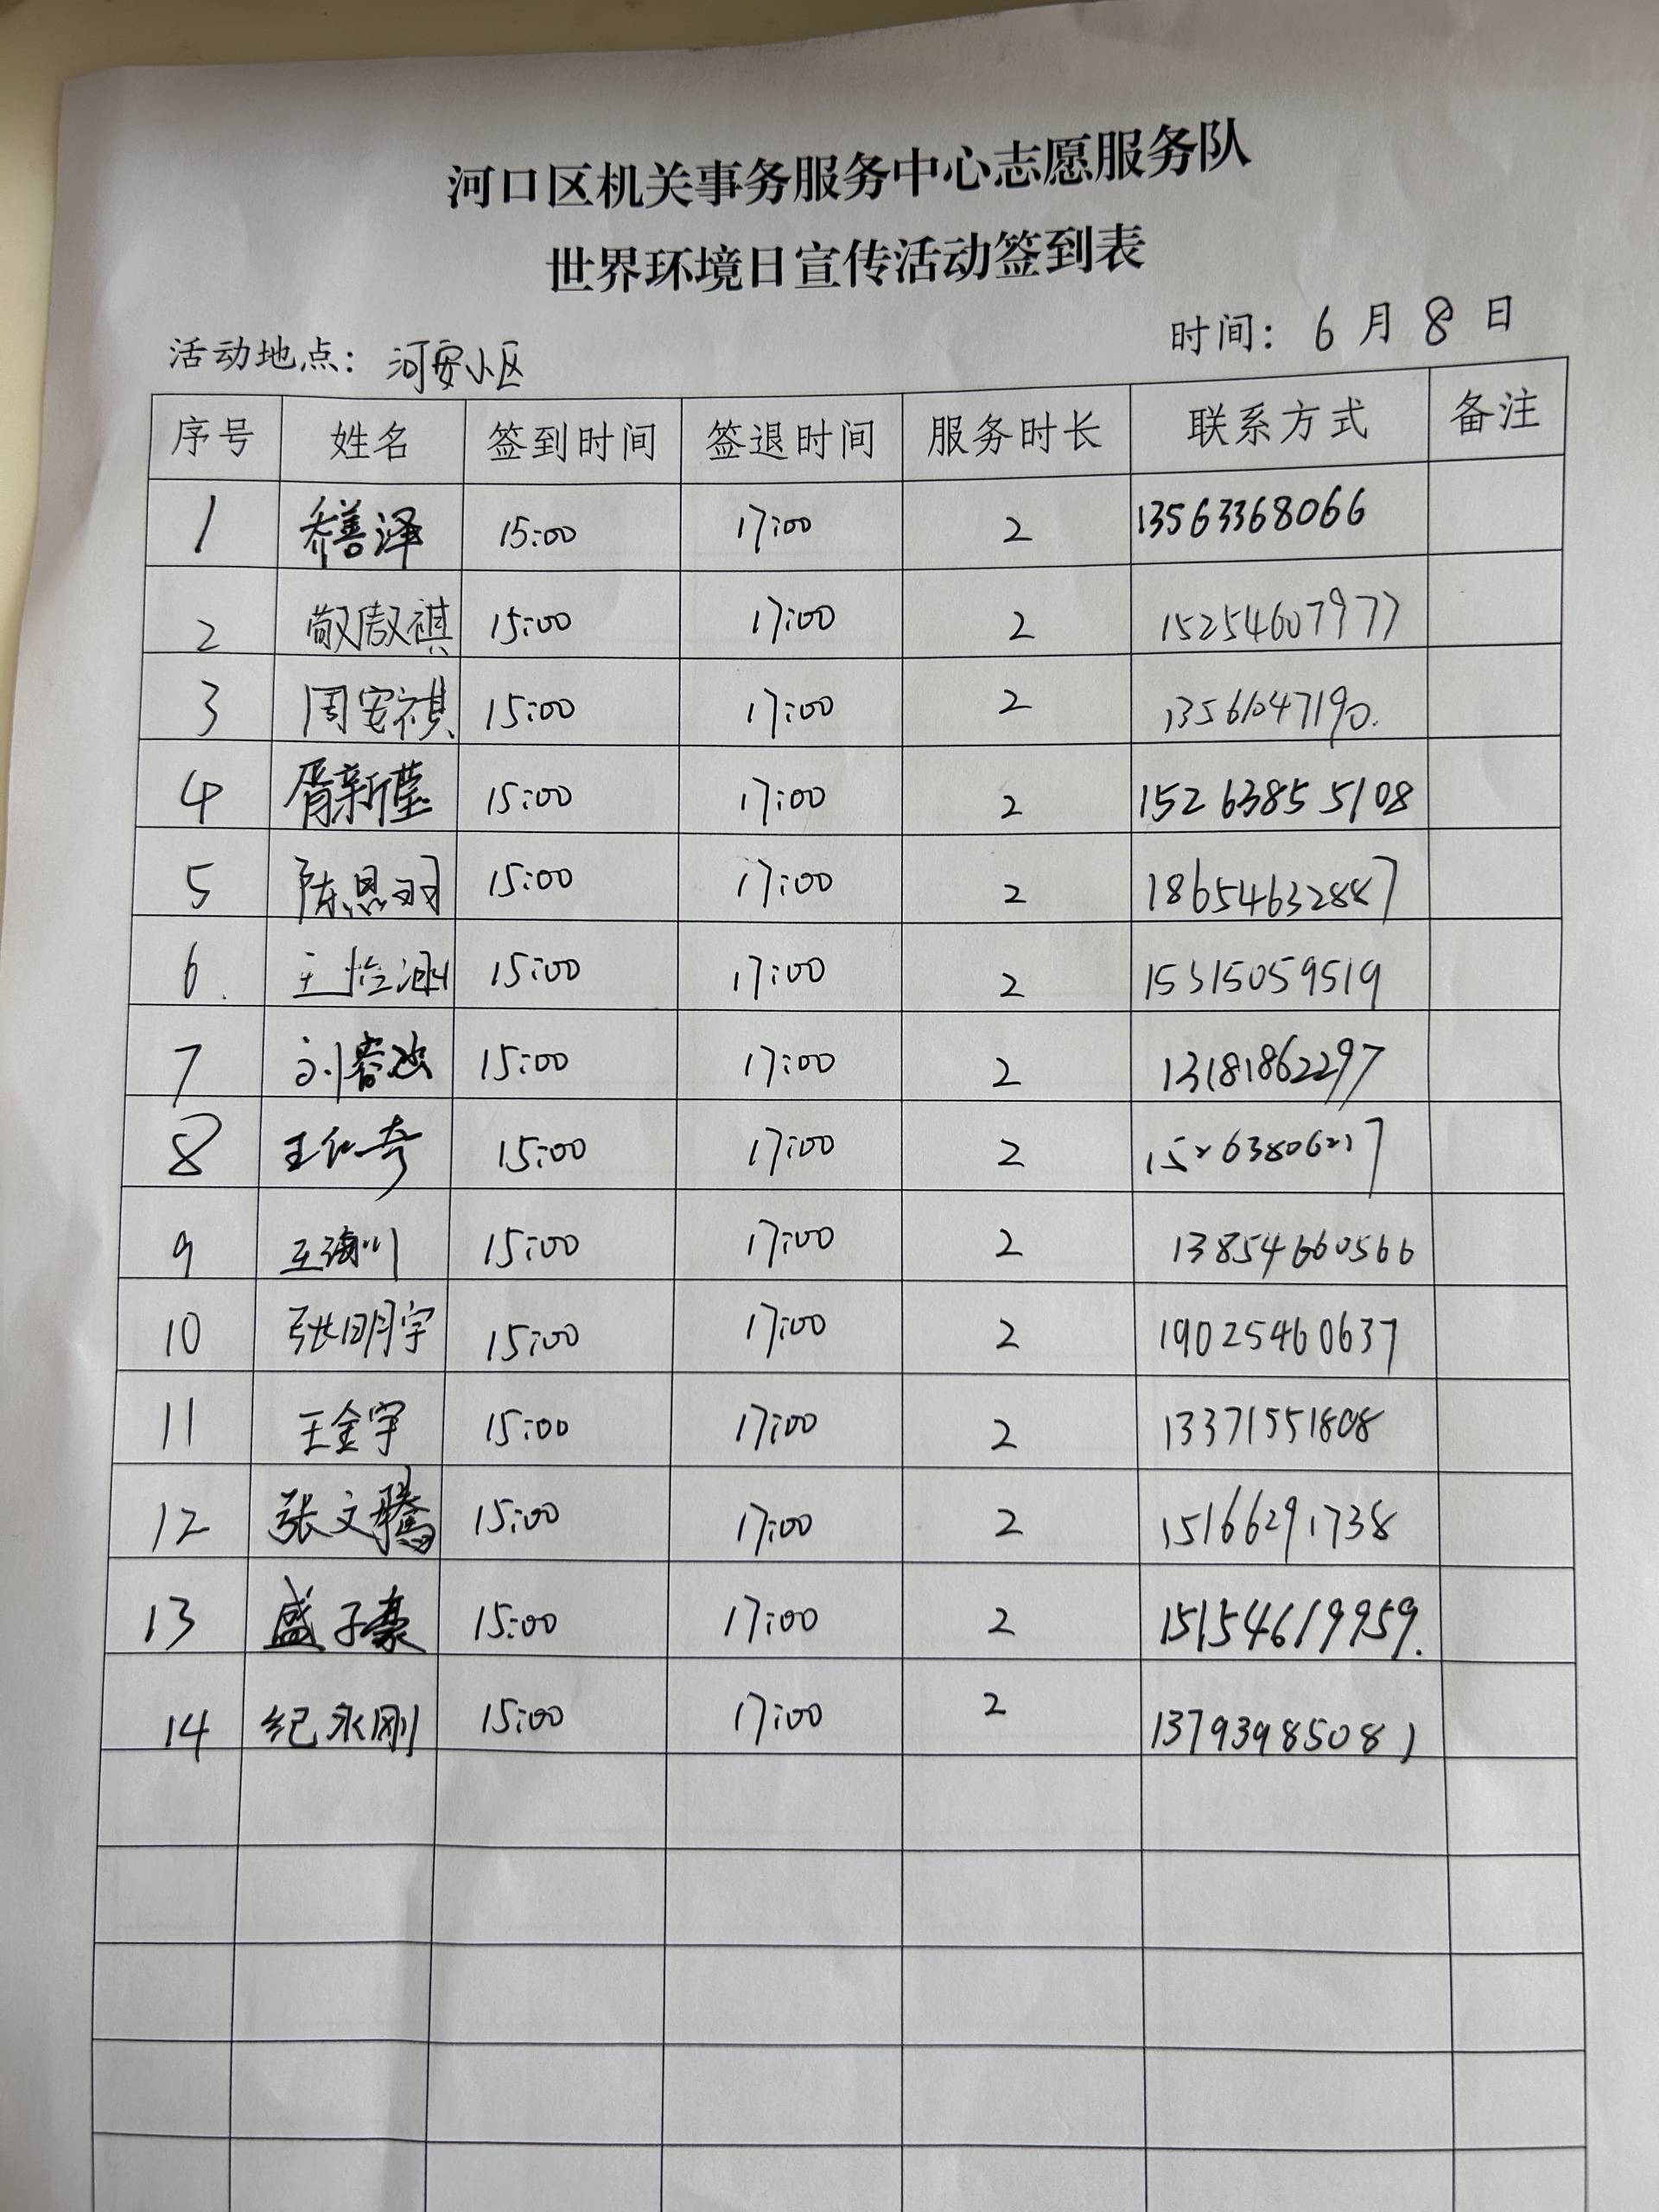 河口区机关事务服务中心志愿服务队
世界环境日宣传活动签到表
活动地点：河安小区 时间：6月8日
序号 姓名 签到时间 签退时间 服务时长 联系方式 备注
1 乔善泽 15:00 17:00 2 13563368066
2 15:00 17:00 2 15254607977
3 周安祺 15:00 17:00 2
4 胥新莹 15:00 17:00 2 15263855108
5 陈恩羽 15:00 17:00 2 18654632887
6. 王怡涵 15:00 17:00 2 15315059519
7 15:00 17:00 2 13181862297
8 王仁奇 15:00 17:00 2 15263806217
9 王海川 15:00 17:00 2 13854660566
10 张明宇 15:00 17:00 2 19025460637
11 王金宇 15:00 17:00 2 13371551808
12 张文腾 15:00 17:00 2 15166291738
13 盛子豪 15:00 17:00 2 15154619959.
14 纪永刚 15:00 17:00 2 13793985081